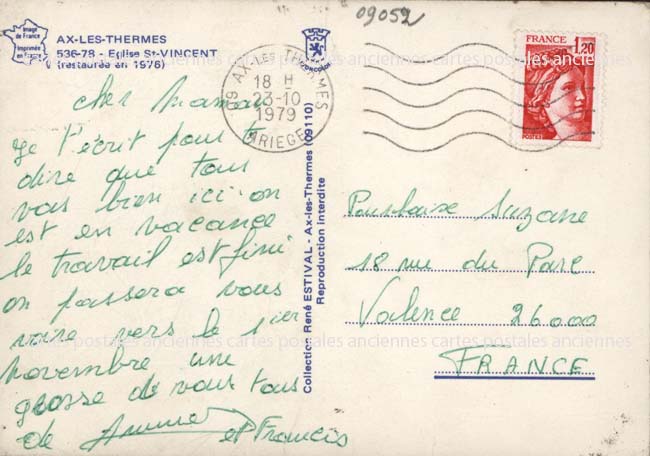 09052
Image de France
Imprimée en France
AX-LES-THERMES
536-78 - Eglise St-VINCENT
(restaurée en 1976)
CONCORDE
09 AX-LES-THERMES
18 H
23-10
1979
ARIEGE
FRANCE
1,20
POSTES
cher maman
je t'écrit pour te
dire que tous
vas bien ici on
est en vacance
le travail est fini
on passera vous
voire vers le 1er
novembre une
grosse de vous tous
de
et Francis
Collection René ESTIVAL - Ax-les-Thermes (09110)
Reproduction interdite
Suzane
18 rue du Parc
Valence 26000
FRANCE
cartes postales anciennes cartes postales anciennes cartes postales anciennes